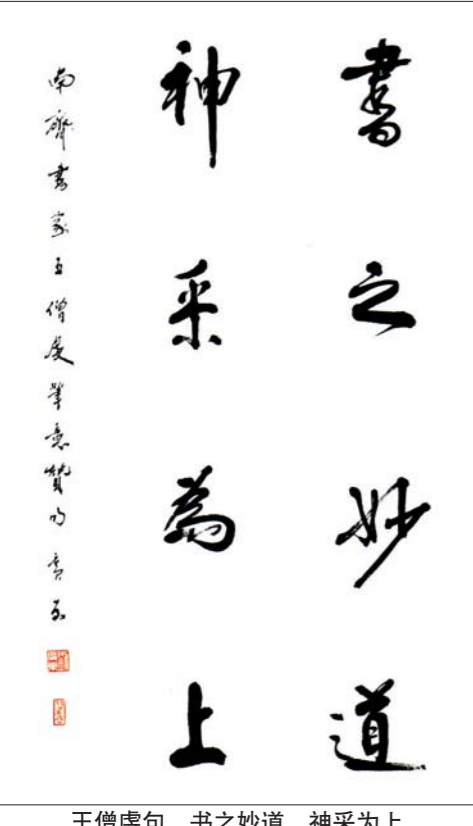 書之妙道
神采為上
南齊書家王僧虔筆意贊句
王僧虔句 书之妙道 神采为上